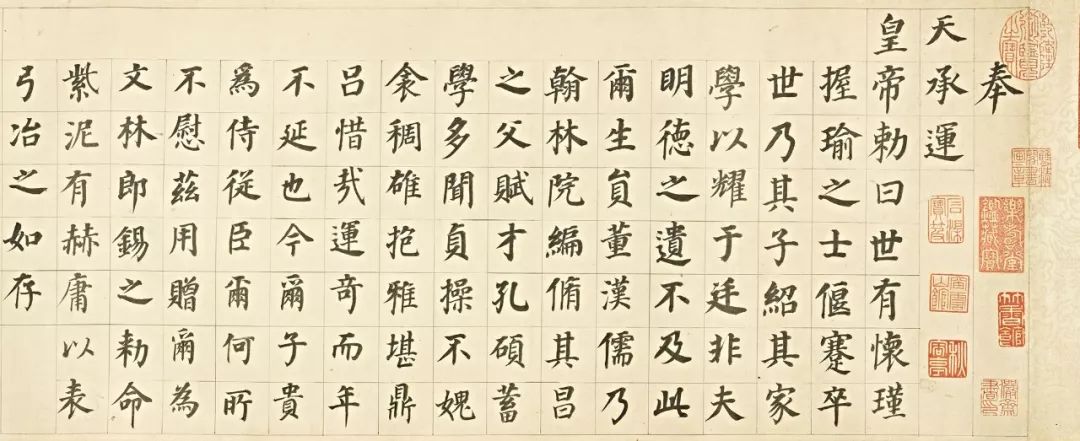 奉
天承運
皇帝勅曰世有懷瑾
握瑜之士偃蹇卒
世乃其子紹其家
學以耀于廷非夫
明德之遺不及此
爾生員董漢儒乃
翰林院編脩其昌
之父賦才孔碩蓄
學多聞貞操不媿
衾裯雄抱雅堪鼎
呂惜㦲運奇而年
不延也今爾子貴
為侍從臣爾何所
不慰茲用贈爾為
文林郎錫之勅命
紫泥有赫庸以表
弓冶之如存
石渠寶笈